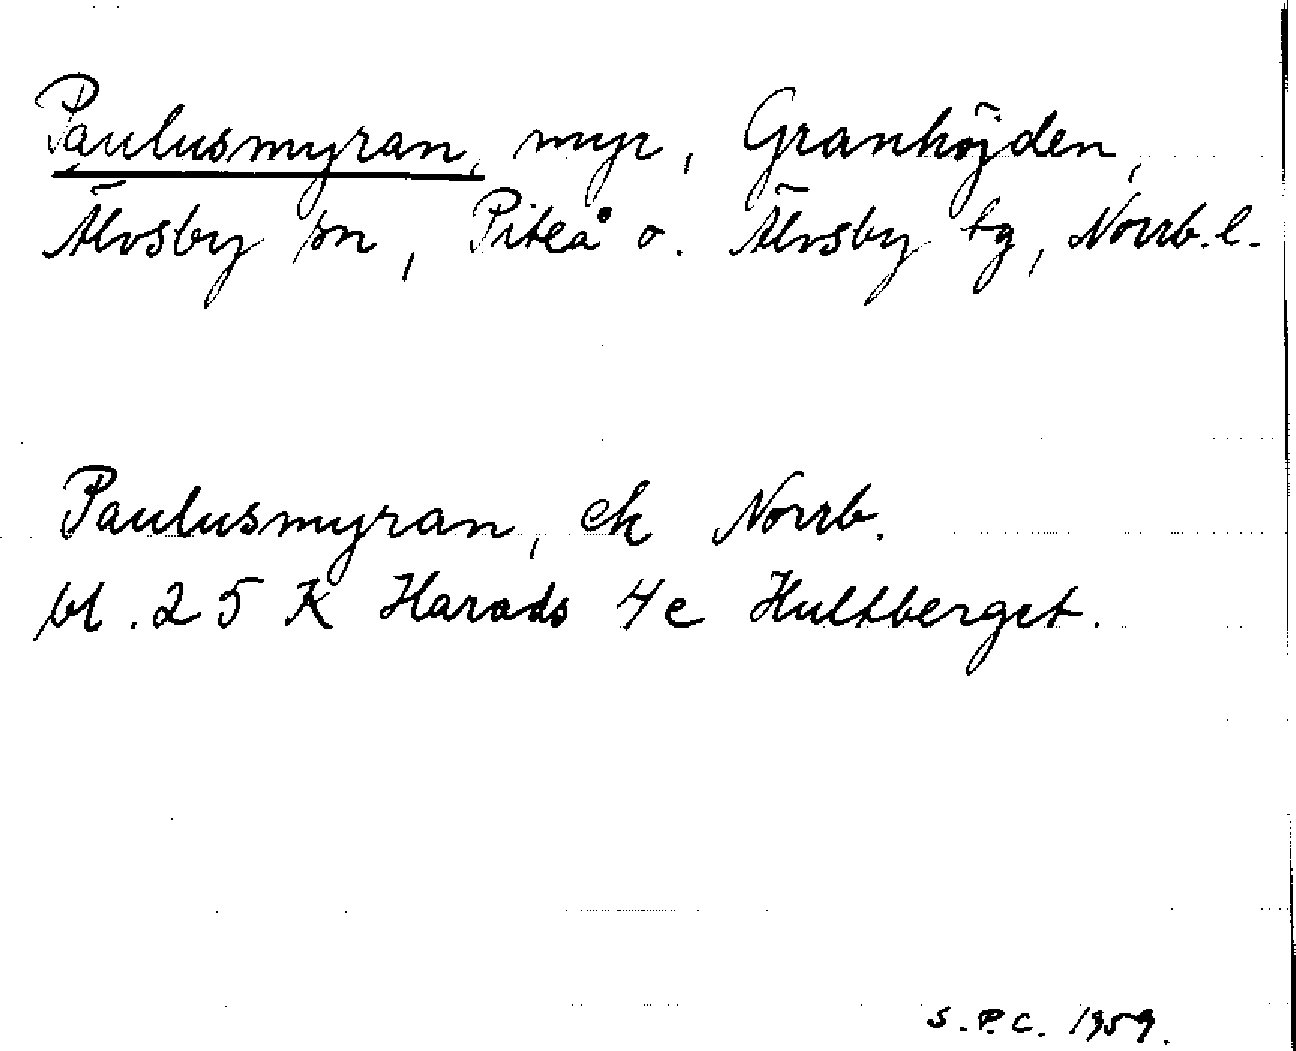 Paulusmyran, myr, Granhöjden,
Älvsby sn, Piteå o. Älvsby tg, Norrb. l.
Paulusmyran, ek Norrb.
bl. 25 K Harads 4 e Hultberget.
S.P.C. 1959.